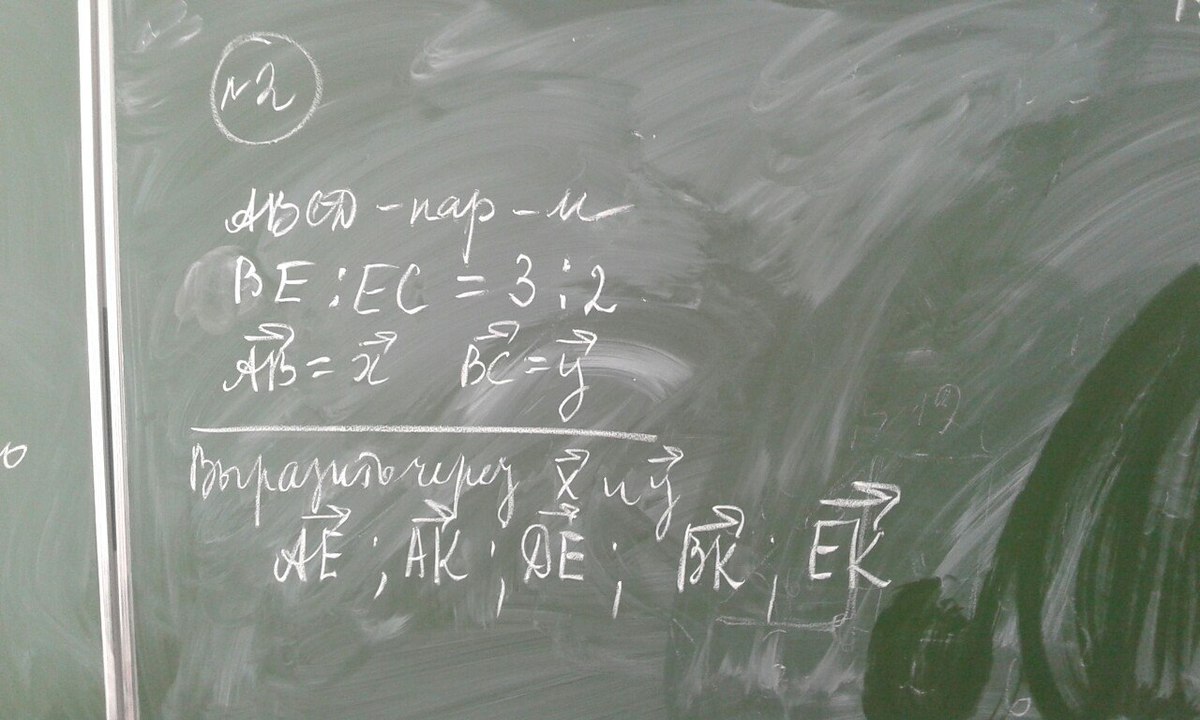 №2
ABCD - пар - м
BE : EC = 3 : 2
AB⃗ = x⃗ BC⃗ = y⃗
Выразить через x⃗ и y⃗
AE⃗ ; AK⃗ ; DE⃗ ; BK⃗ ; EK⃗